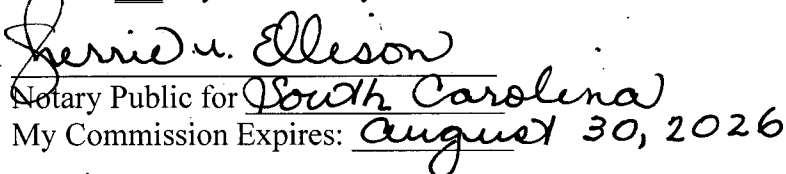 Sherrie U. Ellison
Notary Public for South Carolina
My Commission Expires: August 30, 2026